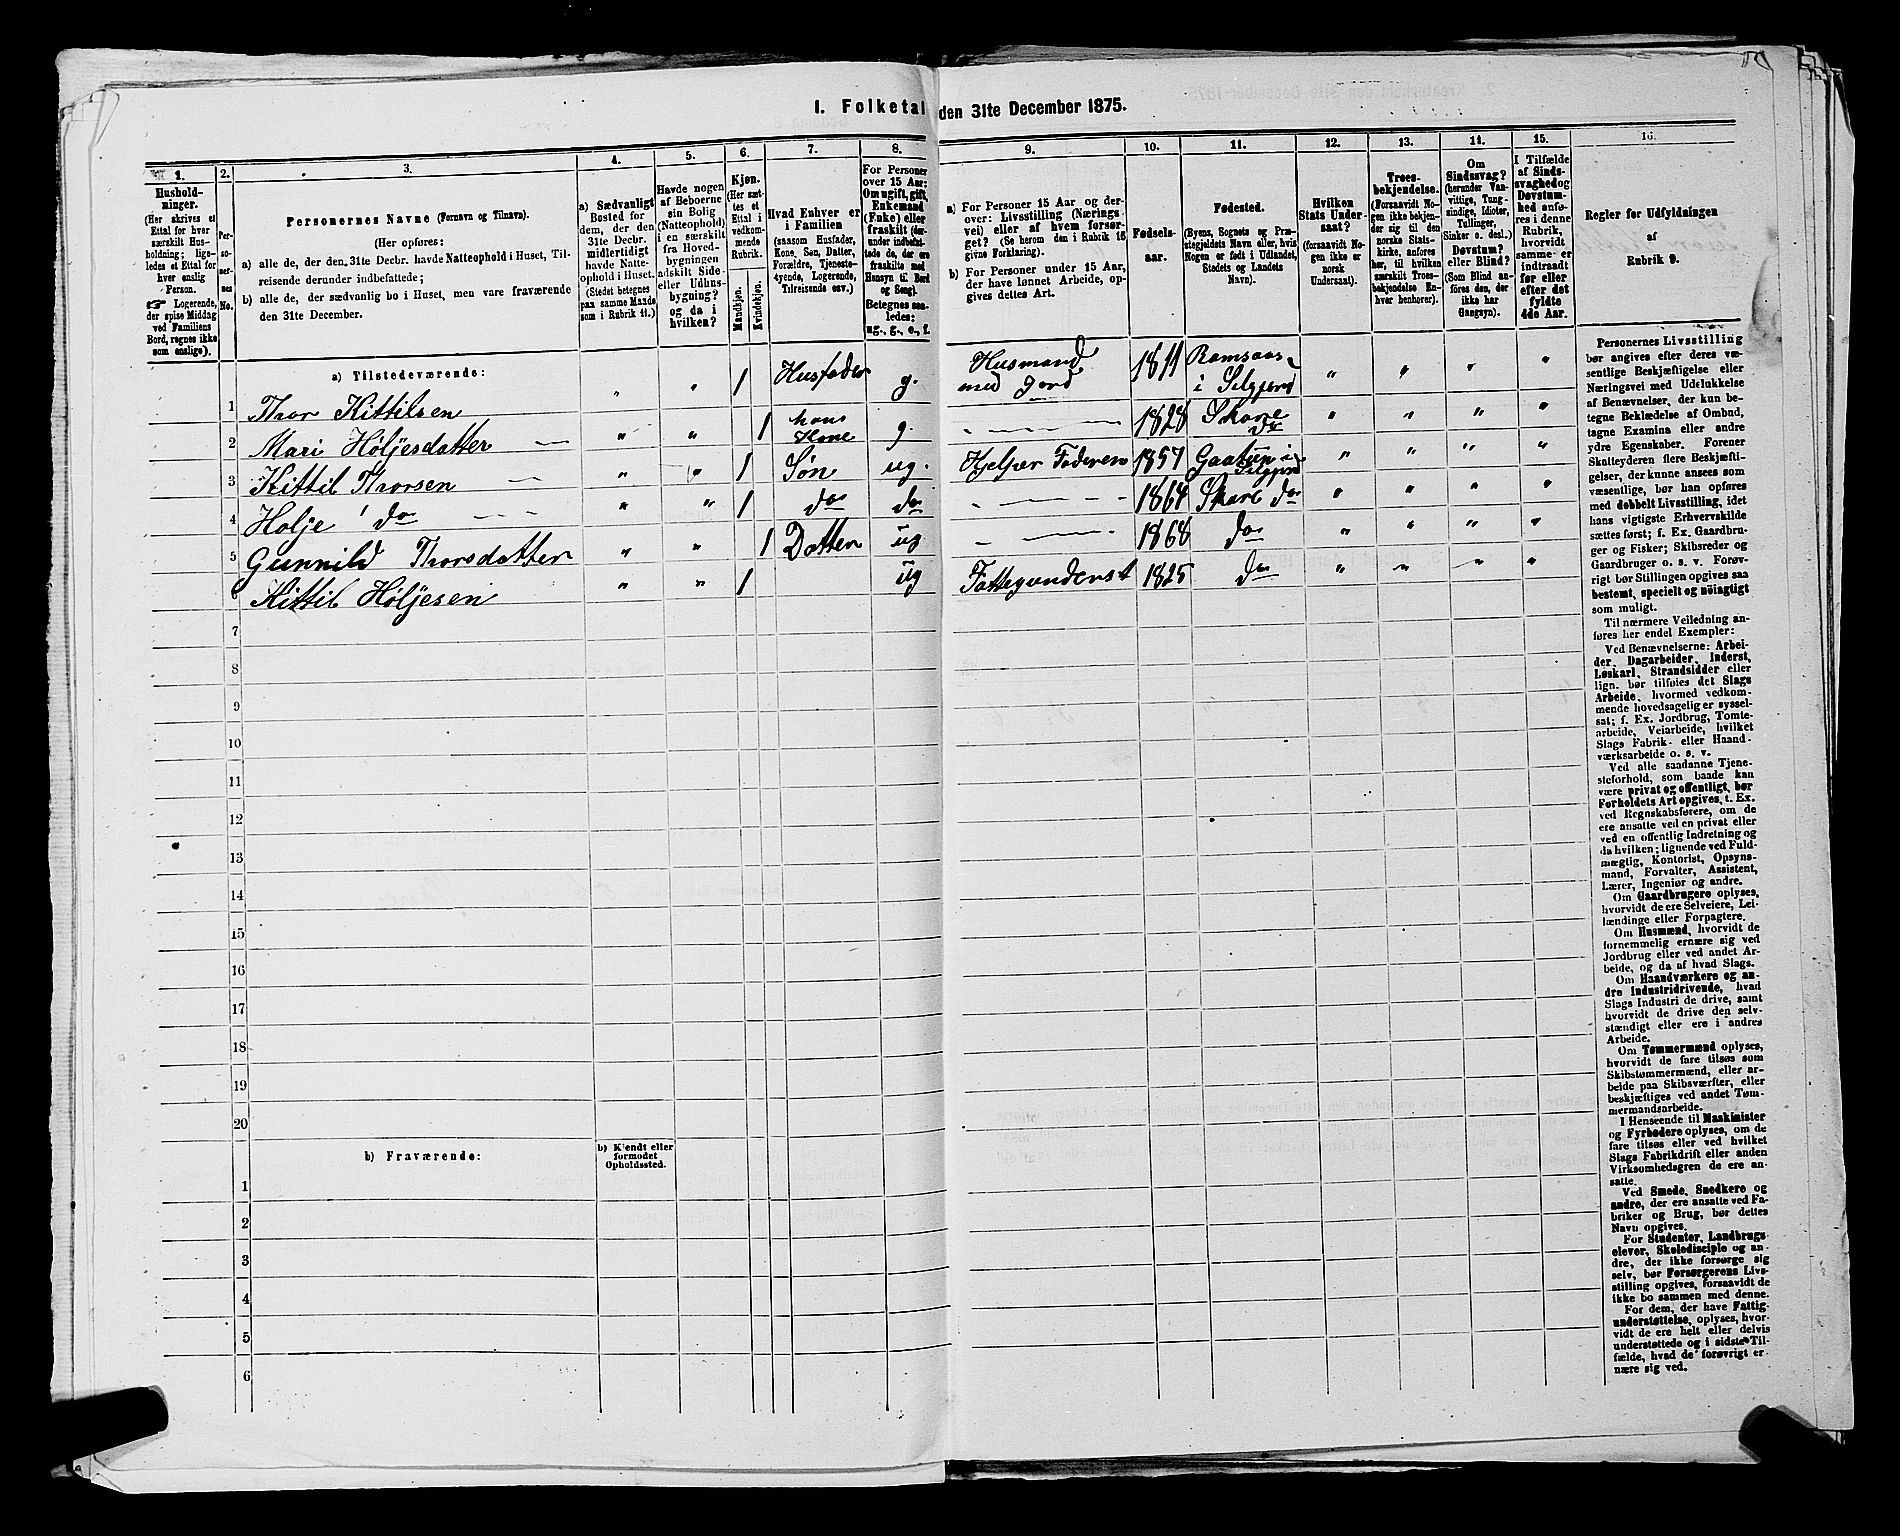 I. Folketal den 31te December 1875.
1. 2. 3. 4. 5. 6. 7. 8. 9. 10. 11. 12. 13. 14. 15. 16.
Hushold-
ninger.
(Her skrives et
Ettal for hver
særskilt Hus-
holdning; lige-
ledes et Ettal for
hver enslig
Person.
☞ Logerende,
der spise Middag
ved Familiens
Bord, regnes ikke
som enslige).
Per-
so-
ner-
nes
No.
Personernes Navne (Fornavn og Tilnavn).
(Her opføres:
a) alle de, der den 31te Decbr. havde Natteophold i Huset, Til-
reisende derunder indbefattede;
b) alle de, der sædvanlig bo i Huset, men vare fraværende
den 31te December.
a) Sædvanligt
Bosted for
dem, der den
31te Decbr.
midlertidigt
havde Natte-
ophold i Huset.
(Stedet betegnes
paa samme Maade
som i Rubrik 11.)
Havde nogen
af Beboerne
sin Bolig
(Natteophold)
i en særskilt
fra Hoved-
bygningen
adskilt Side-
eller Udhus-
bygning?
og da i
hvilken?
Kjøn.
(Her sæt-
tes et
Ettal i
vedkom-
mende
Rubrik.
Mandkjøn.
Kvindekjøn.
Hvad Enhver er
i Familien
(saasom Husfader,
Kone, Søn, Datter,
Forældre, Tjeneste-
tyende, Logerende,
Tilreisende osv.)
For Personer
over 15 Aar:
Om ugift, gift,
Enkemand
(Enke) eller
fraskilt (der-
under indbefat-
tede de, der ere
fraskilte med
Hensyn til Bord
og Seng).
Betegnes saa-
ledes:
ug., g., e., f.
a) For Personer 15 Aar og der-
over: Livsstilling (Nærings-
vei) eller af hvem forsør-
get? (Se herom den i Rubrik 16
givne Forklaring).
b) For Personer under 15 Aar,
der have lønnet Arbeide, op-
gives dettes Art.
Fødsels-
aar.
Fødested.
(Byens, Sognets og Præ-
stegjeldets Navn eller, hvis
Nogen er født i Udlandet,
Stedets og Landets
Navn).
Hvilken
Stats Under-
saat?
(forsaavidt No-
gen ikke er
norsk
Undersaat).
Troes-
bekjendelse.
(Forsaavidt No-
gen ikke bekjen-
der sig til den
norske Stats-
kirke, anføres
her, til hvilken
særskilt Troes-
bekjendelse En-
hver henhører).
Om
Sindssvag?
(herunder Van-
vittige, Tung-
sindige, Idioter,
Tullinger,
Sinker o. desl.)
Døvstum?
eller Blind?
(Som Blind an-
føres den, der
ikke har
Gangsyn).
I Tilfælde
af Sinds-
svaghed og
Døvstum-
hed anfø-
res i denne
Rubrik,
hvorvidt
samme er
indtraadt
før eller
efter det
fyldte
4de Aar.
Regler for Udfyldningen
af
Rubrik 9.
a) Tilstedeværende:
1 Thor Kittilsen " " 1 Husfader g. Husmand med Jord 1811 Ramsaas i Selgjord " " " "
2 Mari Høljesdatter " " 1 hans Kone g. " 1828 Skare do " " " "
3 Kittil Thorsen " " 1 Søn ug. Hjelper Faderen 1857 Gaatun i Selgjord " " " "
4 Holje do " " 1 do do " 1864 Skare do " " " "
5 Gunnild Thorsdatter " " 1 Datter ug " 1868 do " " " "
6 Kittil Høljesen " " 1 ug Fattigunderst 1825 do " " " "
7
8
9
10
11
12
13
14
15
16
17
18
19
20
b) Fraværende:
b) Kjendt eller
formodet
Opholdssted.
1
2
3
4
5
6
Personernes Livsstilling
bør angives efter deres væ-
sentlige Beskjæftigelse eller
Næringsvei med Udelukkelse
af Benævnelser, der kun be-
tegne Beklædelse af Ombud,
tagne Examina eller andre
ydre Egenskaber. Forener
Skatteyderen flere Beskjæfti-
gelser, der kunne ansees som
væsentlige, bør han opføres
med dobbelt Livsstilling, idet
hans vigtigste Erhvervskilde
sættes først; f. Ex. Gaardbru-
ger og Fisker; Skibsreder og
Gaardbruger o. s. v. Forøv-
rigt bør Stillingen opgives saa
bestemt, specielt og nøiagtigt
som muligt.
Til nærmere Veiledning an-
føres her endel Exempler:
Ved Benævnelserne: Arbei-
der, Dagarbeider, Inderst,
Løskarl, Strandsidder eller
lign. bør tilføies det Slags
Arbeide, hvormed vedkom-
mende hovedsagelig er syssel-
sat; f. Ex. Jordbrug, Tomte-
arbeide, Veiarbeide, hvilket
Slags Fabrik- eller Haand-
værksarbeide o. s. v.
Ved alle saadanne Tjene-
steforhold, som baade kan
være privat og offentligt, bør
Forholdets Art opgives, t. Ex.
ved Regnskabsførere, om de
ere ansatte ved en privat eller
ved en offentlig Indretning og
da hvilken; lignende ved Fuld-
mægtig, Kontorist, Opsyns-
mand, Forvalter, Assistent,
Lærer, Ingeniør og andre.
Om Gaardbrugere oplyses,
hvorvidt de ere Selveiere, Lei-
lændinge eller Forpagtere.
Om Husmænd, hvorvidt de
fornemmelig ernære sig ved
Jordbrug eller ved andet Ar-
beide, og da af hvad Slags.
Om Haandværkere og an-
dre industridrivende, hvad
Slags Industri de drive, samt
hvorvidt de drive den selv-
stændigt eller ere i andres
Arbeide.
Om Tømmermænd oplyses,
hvorvidt de fare tilsøs som
Skibstømmermænd, eller ar-
beide paa Skibsværfter, eller
beskjæftiges ved andet Tøm-
mermandsarbeide.
I Henseende til Maskinister
og Fyrbødere oplyses, om de
fare tilsøs eller ved hvilket
Slags Fabrikdrift eller anden
Virksomhedsgren de ere an-
satte.
Ved Smede, Snedkere og
andre, der ere ansatte ved Fa-
briker og Brug, bør dettes
Navn opgives.
For Studenter, Landbrugs-
elever, Skoledisciple og an-
dre, der ikke forsørge sig
selv, bør Forsørgerens Livs-
stilling opgives, forsaavidt de
ikke bo sammen med denne.
For dem, der have Fattig-
understøttelse, oplyses, hvor-
vidt de ere helt eller delvis
understøttede og i sidste Til-
fælde, hvad de forøvrigt er-
nære sig ved.